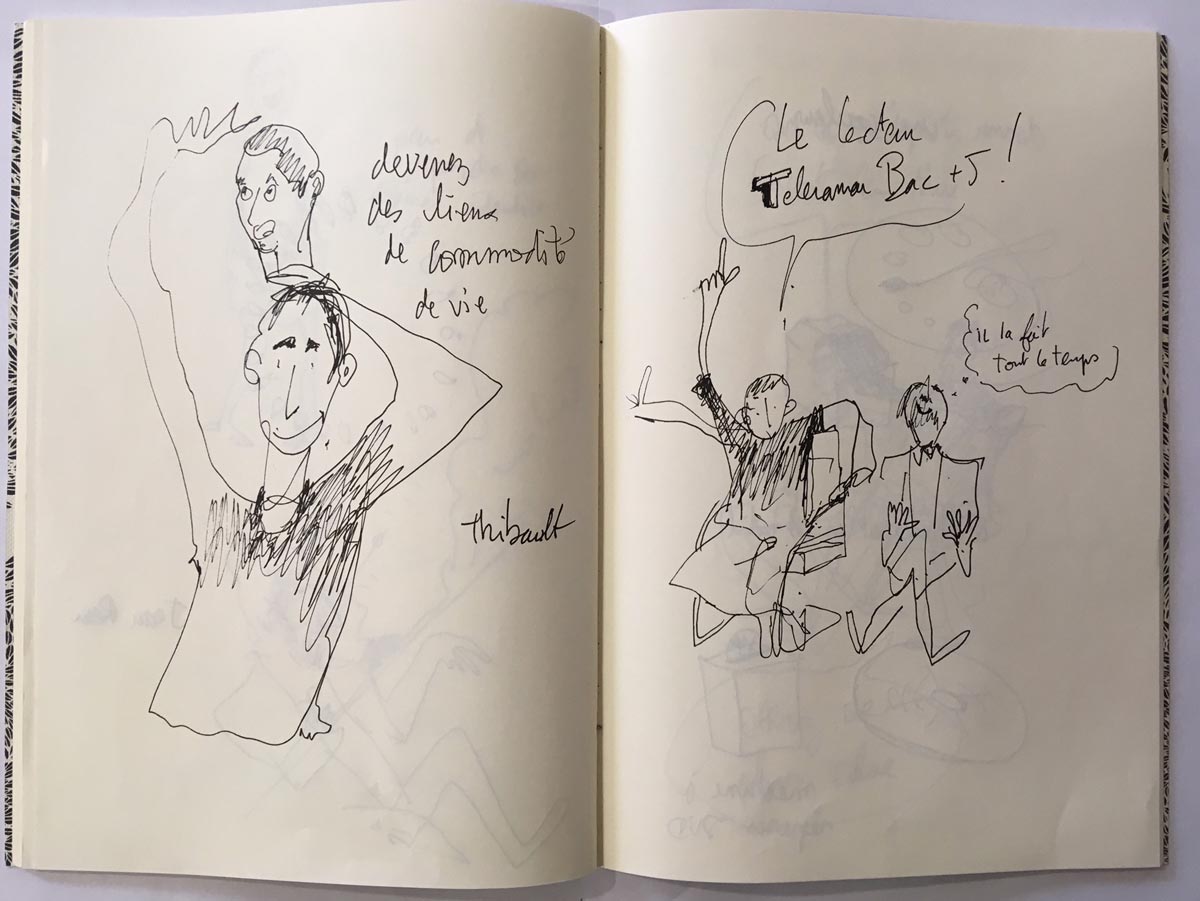 devenez
des lieux
de commodité
de vie
Thibault
Le lecteur
Telerama Bac +5!
il la fait
tout le temps